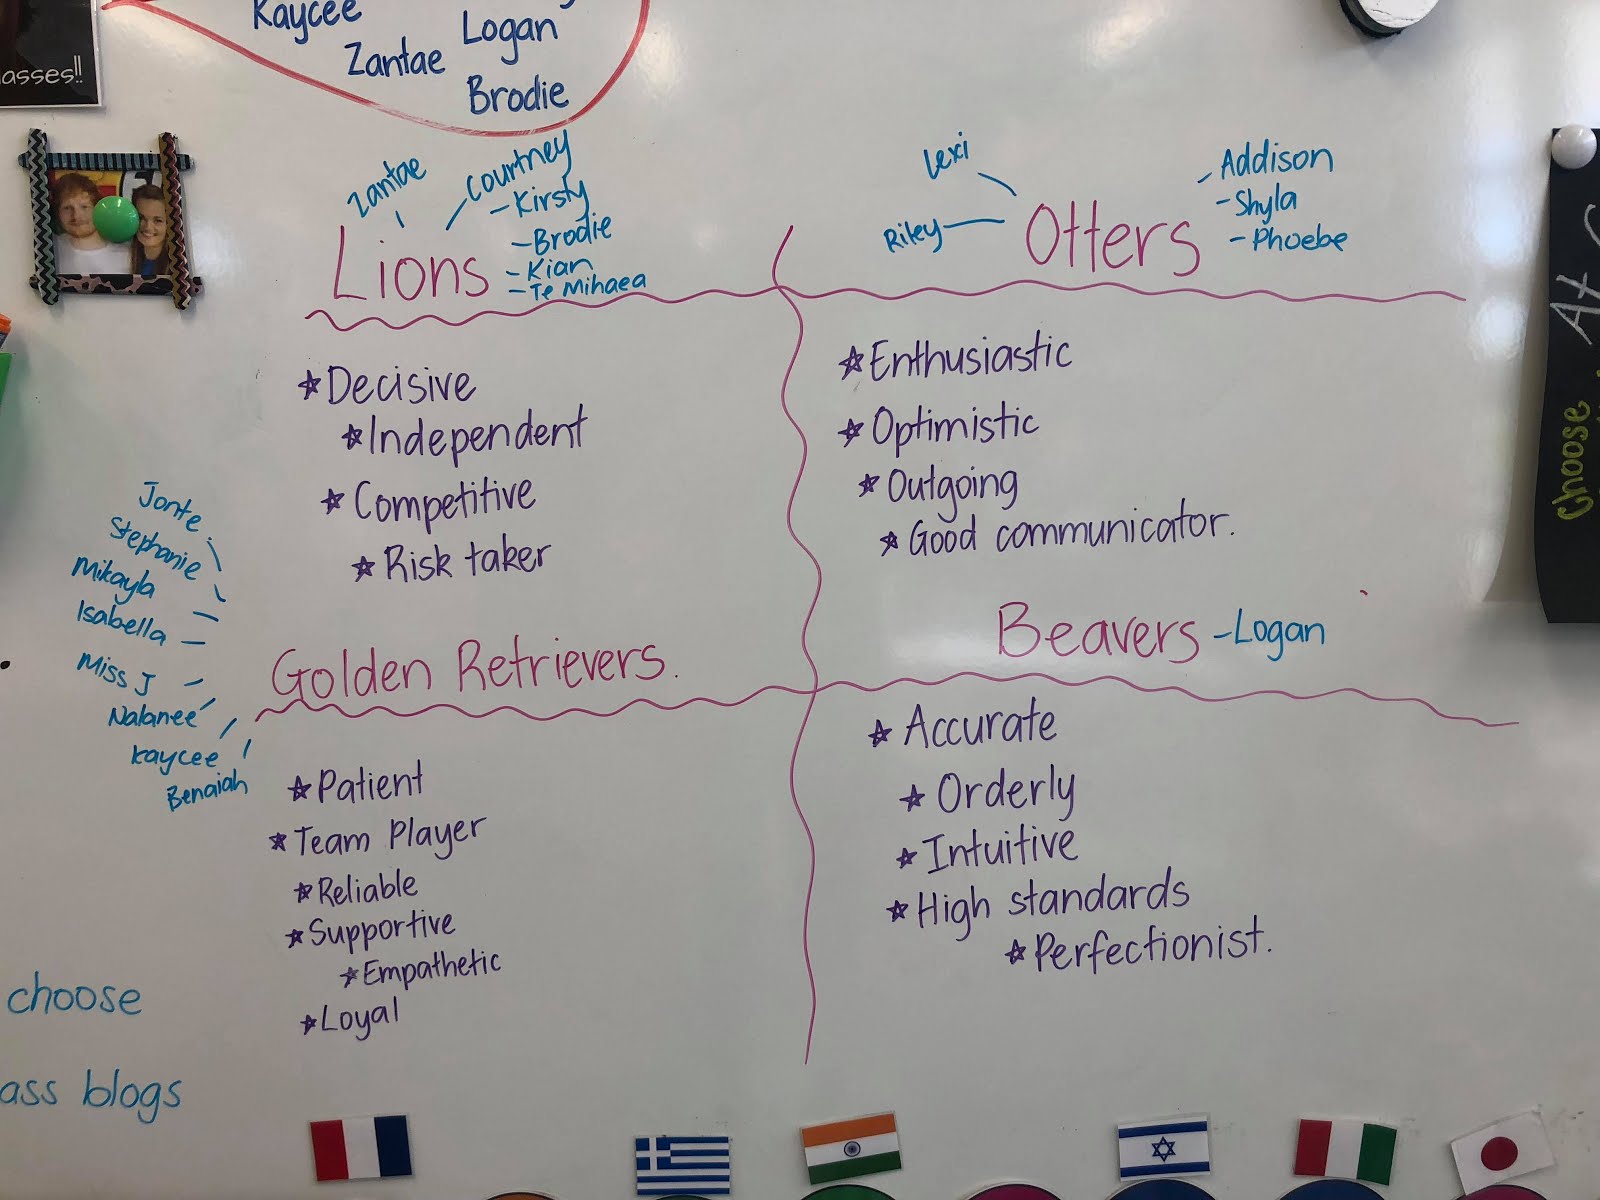 asses!!
Kaycee
Logan
Zantae
Brodie
Zantae
Courtney
- Kirsty
- Brodie
- Kian
- Te Mihaea
Lions
Lexi
Riley
Otters
Addison
- Shyla
- Phoebe
* Decisive
* Independent
* Competitive
* Risk taker
* Enthusiastic
* Optimistic
* Outgoing
* Good communicator.
Jonte
Stephanie
Mikayla
Isabella
Miss J
Nalanee
Kaycee
Benaiah
Golden Retrievers.
Beavers - Logan
* Patient
* Team Player
* Reliable
* Supportive
* Empathetic
* Loyal
* Accurate
* Orderly
* Intuitive
* High standards
* Perfectionist.
choose
ass blogs
At C
Choose